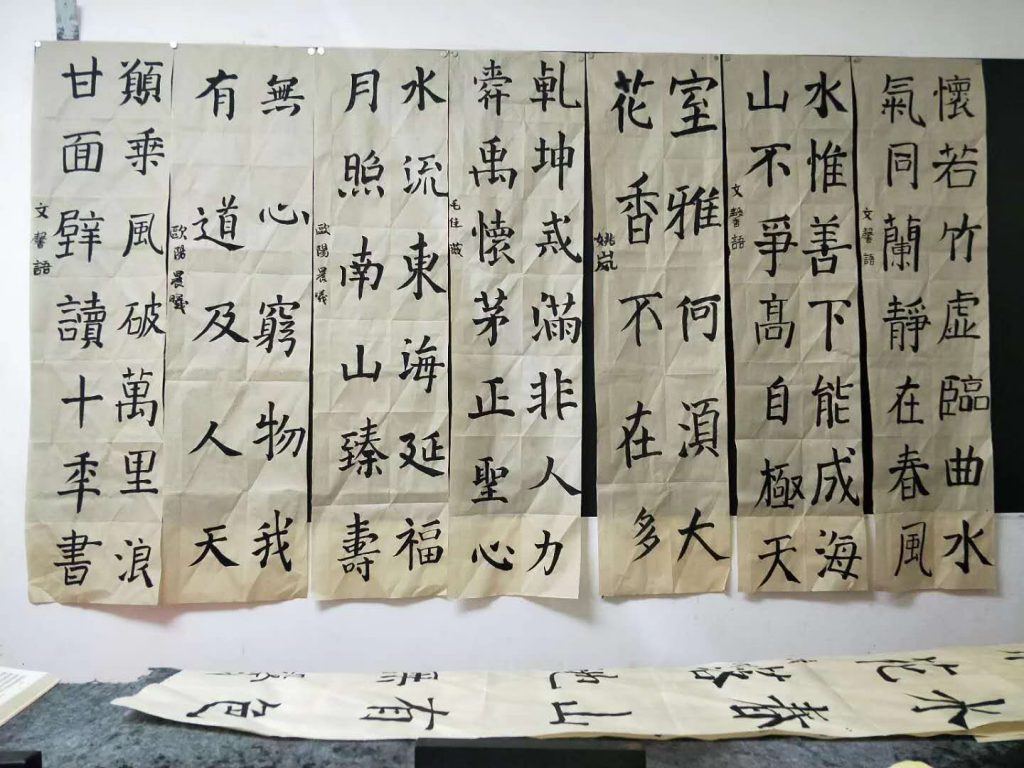 懷若竹虛臨曲水
氣同蘭靜在春風
文馨語
水惟善下能成海
山不爭高自極天
文馨語
室雅何須大
花香不在多
姚嵐
軋坤戒滿非人力
舜禹懷茅正聖心
毛佳薇
水流東海延福
月照南山臻壽
歐陽晨曦
無心窮物我
有道及人天
歐陽晨曦
願乘風破萬里浪
甘面壁讀十秊書
文馨語